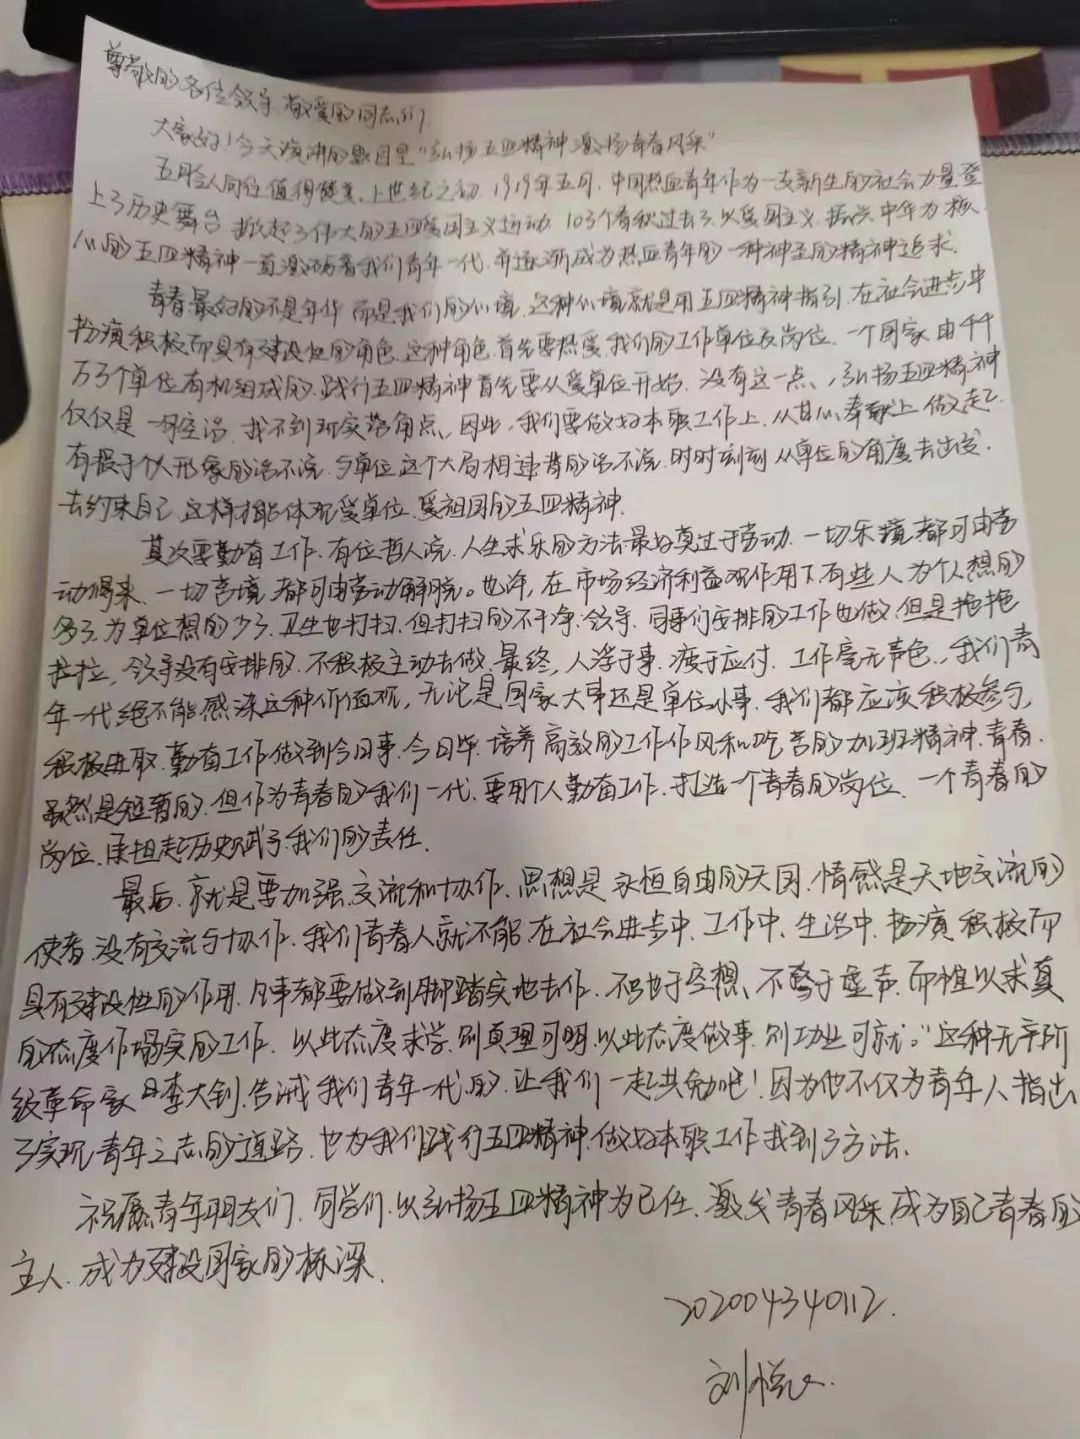 尊敬的各位领导,敬爱的同志们:
大家好!今天演讲的题目是"弘扬五四精神 激扬青春风采"
五月 值得 上世纪之初,1919年五月,中国热血青年作为一支新生的社会力量登
上了历史舞台 掀起了伟大的五四爱国主义运动,103个春秋过去了,以爱国主义、振兴中华为核
心的五四精神一直激励着我们青年一代,并逐渐成为热血青年的一种神圣的精神追求.
青春最好的不是年华 而是我们的心境,这种心境就是用五四精神指引,在社会进步中
扮演积极而具有建设性的角色,这种角色,首先要热爱我们的工作单位及岗位,一个国家由千千
万万个单位有机组成的,践行五四精神首先要从爱单位开始,没有这一点,弘扬五四精神
仅仅是一句空话,找不到现实落角点、因此,我们要做好本职工作上,从其心,奉献上做起.
有损于个人形象的话不说,与单位这个大局相违背的话不说,时时刻刻从单位的角度去出发,
去约束自己,这样才能体现爱单位、爱祖国的五四精神.
其次要勤奋工作,有位哲人说,人生求乐的方法最好莫过于劳动,一切乐境都可由劳
动得来,一切苦境,都可由劳动解脱。也许,在市场经济利益双作用下,有些人为个人想的
多了,为单位想的少了,卫生也打扫,但打扫的不干净,领导、同事们安排的工作也做,但是拖拖
拉拉,领导没有安排的,不积极主动去做,最终,人浮于事,疲于应付,工作毫无声色,我们青
年一代绝不能感染这种价值观,无论是国家大事还是单位小事,我们都应该积极参与,
积极进取,勤奋工作做到今日事,今日毕,培养高效的工作作风和吃苦的加班精神,青春,
虽然是短暂的,但作为青春的我们一代,要用个人勤奋工作,打造一个青春的岗位、一个青春的
岗位,承担起历史赋予我们的责任.
最后,就是要加强交流和协作,思想是永恒自由的天国,情感是天地交流的
使者,没有交流与协作,我们青春人就不能在社会进步中、工作中、生活中,扮演积极而
具有建设性的作用,凡事都要做到脚踏实地去作,不驰于空想、不骛于虚声,而惟以求真
的态度作踏实的工作,以此态度求学,则真理可明,以此态度做事,则功业可就。"这种无产阶
级革命家李大钊,告诫我们青年一代的,让我们一起共勉吧!因为他不仅为青年人指出
了实现青年之志的道路,也为我们践行五四精神,做好本职工作找到了方法.
祝愿青年朋友们,同学们,以弘扬五四精神为己任,激发青春风采,成为自己青春的
主人,成为建设国家的栋梁.
202004340112.
刘悦